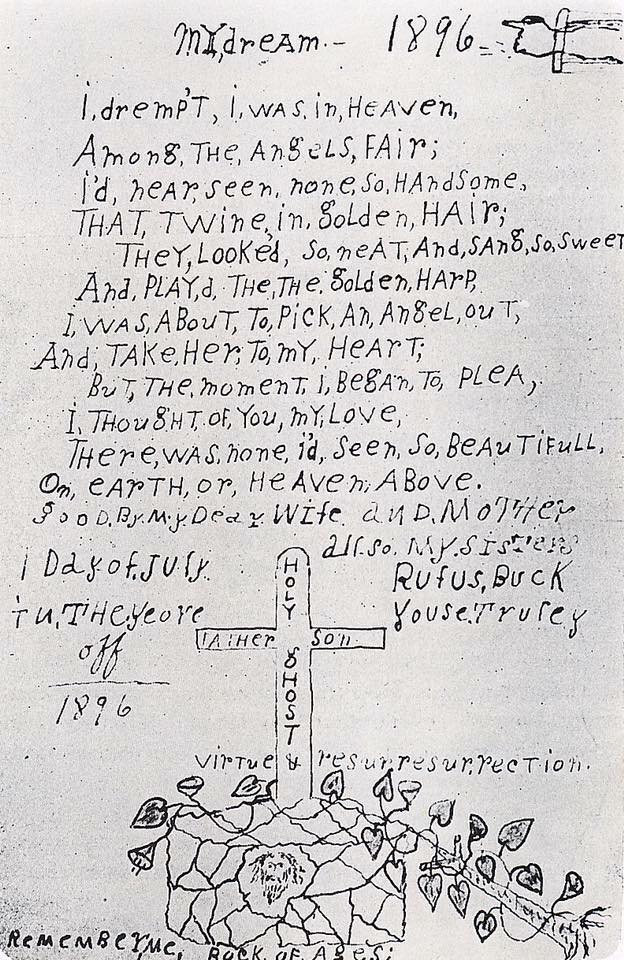 MY,dream.- 1896=
I,drempT, I, WAS, in, HEAVEN,
Among, THE, AngeLS, FAir;
I'd, neAr, seen, none, so, HAndSome,
THAT, TWine, in, golden, HAIr;
THEY, Looked, So, neAT, And, SAng, So, SweeT
And, PLAY,d, THE, THE, golden, HArp,
I, WAS, ABouT, To, Pick, An, Angel, ouT,
And, TAKe, Her, To, mY, HeArT;
BuT, THE, momenT, i, BegAn, To, PLeA,
I, THougHT, oF, You, mY, Love,
THere, WAS, none, i'd, Seen, So, BeAuTiFuLL,
On, eArTH, or, HeAven, ABove.
gooD, By. My Dear. Wife. anD. MoTHer
all.so. My. SisTers
1 Day of. July. Rufus, Buck
Tu, THe, Yeore youse. Truley
off
1896
HOLY GHOST
FATHer Son
virTue & resur,resur,recTion.
RememBer, Me, Rock, of, Ages;